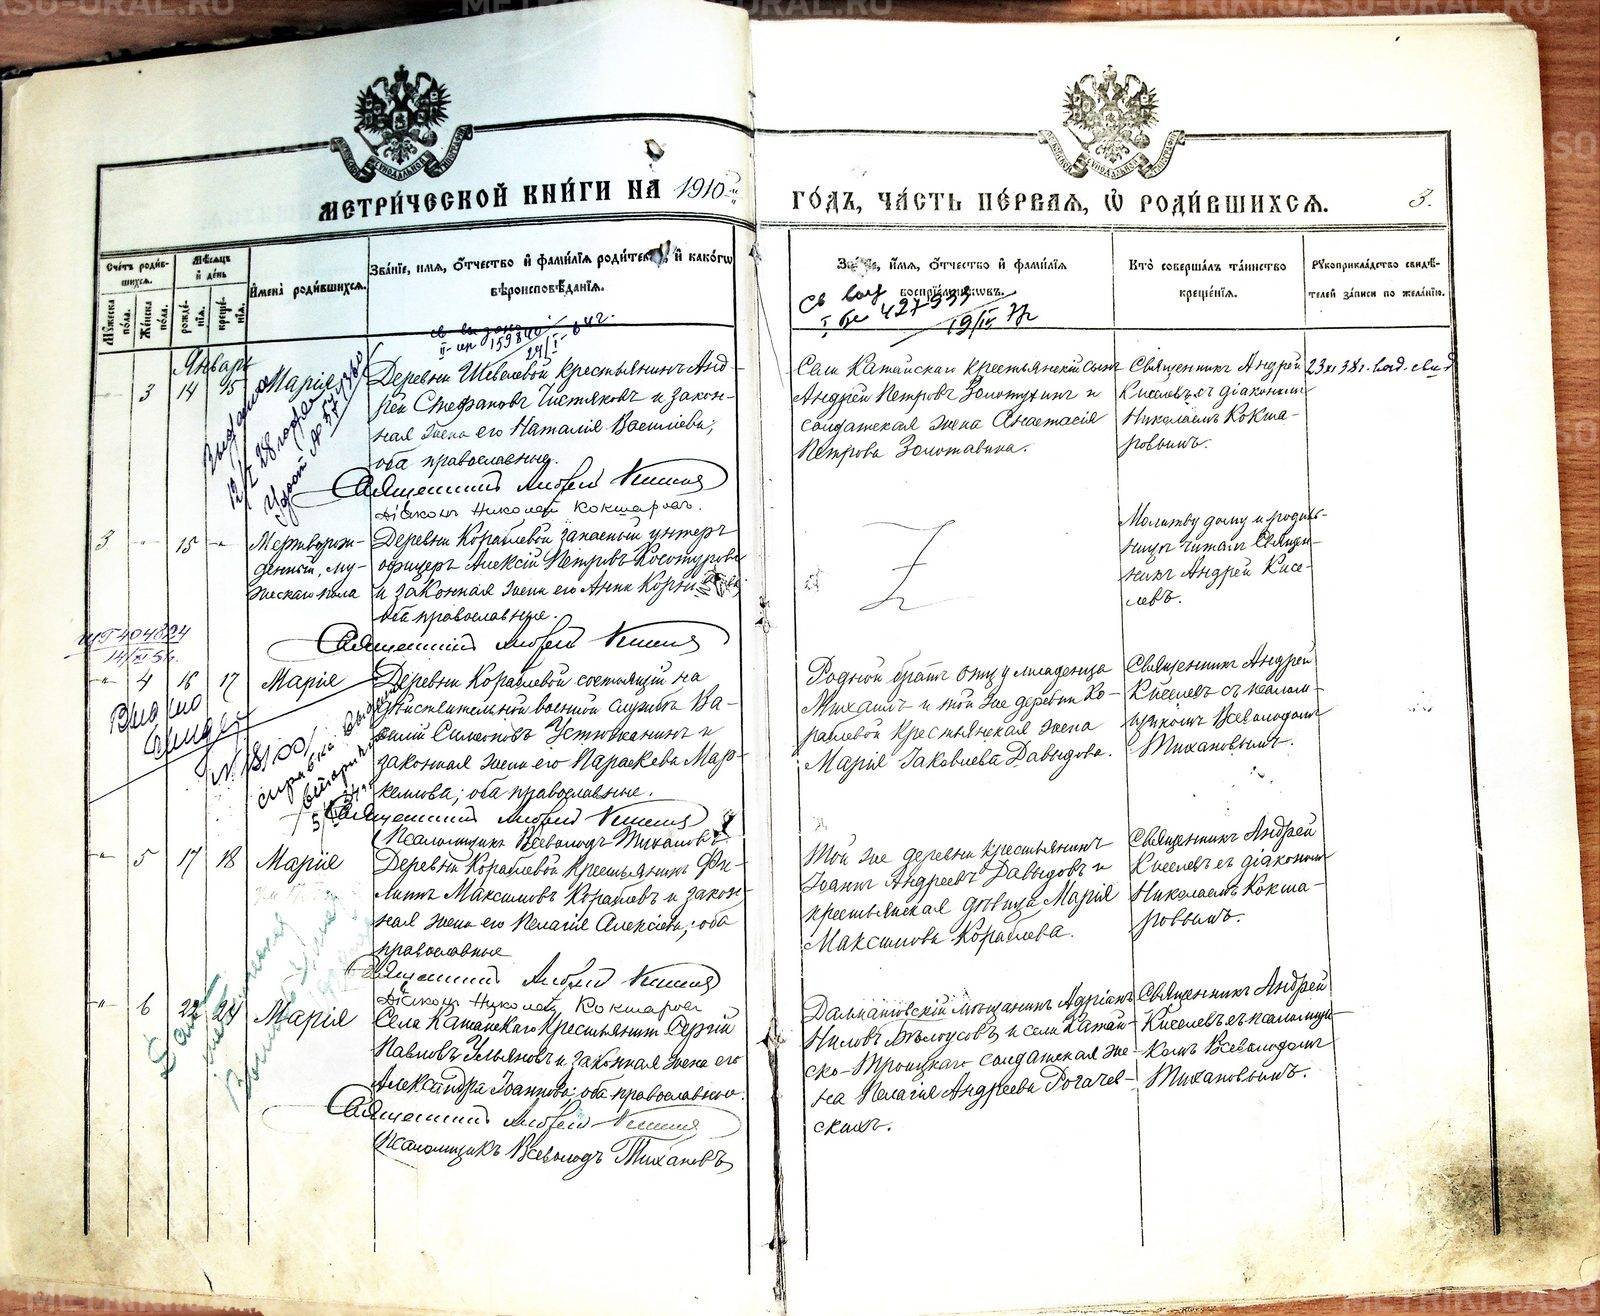 METRIKI.GASO-URAL.RU
МЕТРИ́ЧЕСКОЙ КНИ́ГИ НА 1910 ГО́ДЪ, ЧА́СТЬ ПЕ́РВАЯ, Ѡ РОДИ́ВШИХСЯ.
3.
Счетъ родив-
шихся.
Мѣсяцъ
и день
Мужеска
пола.
Женска
пола.
рожде-
нія.
креще-
нія.
Имена родившихся.
Званіе, имя, отчество и фамилія родителей, и какогѡ
вѣроисповѣданія.
Званіе, имя, отчество и фамилія
воспріемниковъ.
Кто совершалъ таинство
крещенія.
Рукоприкладство свидѣ-
телей записи по желанію.
Январь
3 14 15 Марія
Деревни Шевелевой крестьянинъ Анд-
рей Стефановъ Чистяковъ и закон-
ная жена его Наталія Васильева;
оба православные.
Священникъ Андрей Киселев
Діаконъ Николай Кокшаровъ.
Села Катайскаго крестьянскій сынъ
Андрей Петровъ Золотухинъ и
солдатская жена Анастасія
Петрова Золотавина.
Священникъ Андрей
Киселевъ съ діакономъ
Николаемъ Кокша-
ровымъ.
3 " 15 "
Мертворож-
денный, му-
жескаго пола
Деревни Кораблевой запасный унтеръ
офицеръ Алексій Петровъ
и законная жена его Анна
оба православные.
Священникъ Андрей Киселев
Молитву дому и родиль-
ницы читалъ Священ-
никъ Андрей Кисе-
левъ.
" 4 16 17 Марія
Деревни Кораблевой состоящій на
дѣйствительной военной службѣ Ва-
силій Симеоновъ Устюжанинъ и
законная жена его Параскева Мар-
келова; оба православные.
Священникъ Андрей Киселев
Псаломщикъ Всеволодъ Тихановъ
Родной братъ отцу младенца
Михаилъ и той же деревни Ко-
раблевой крестьянская жена
Марія Іаковлева Давыдова.
Священникъ Андрей
Киселевъ съ псалом-
щикомъ Всеволодомъ
Тихановымъ.
" 5 17 18 Марія
Деревни Кораблевой крестьянинъ Фи-
липпъ Максимовъ Кораблевъ и закон-
ная жена его Пелагія Алексіева; оба
православные
Священникъ Андрей Киселев
Діаконъ Николай Кокшаровъ
Той же деревни крестьянинъ
Іоаннъ Андреевъ Давыдовъ и
крестьянская дѣвица Марія
Максимова Кораблева.
Священникъ Андрей
Киселевъ съ діакономъ
Николаемъ Кокша-
ровымъ.
" 6 22 24 Марія
Села Катайскаго крестьянинъ Сергій
Павловъ Ульяновъ и законная жена его
Александра Іоаннова; оба православные.
Священникъ Андрей Киселев
Псаломщикъ Всеволодъ Тихановъ
Далматовскій мѣщанинъ Адріанъ
Ниловъ Бѣлоусовъ и села Катай-
ско-Троицкаго солдатская же-
на Пелагія Андреева Рогачев-
скихъ.
Священникъ Андрей
Киселевъ съ псаломщи-
комъ Всеволодомъ
Тихановымъ.